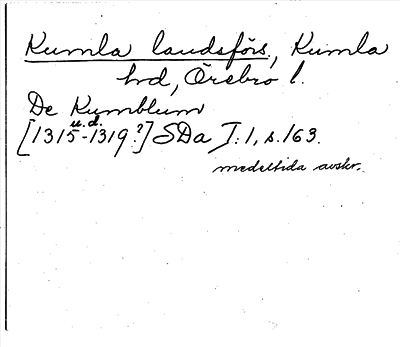 Kumla landsförs., Kumla
hd, Örebro l.
De Kumblum
u.d.
[1315-1319?] SDa I:1, s.163.
medeltida avskr.